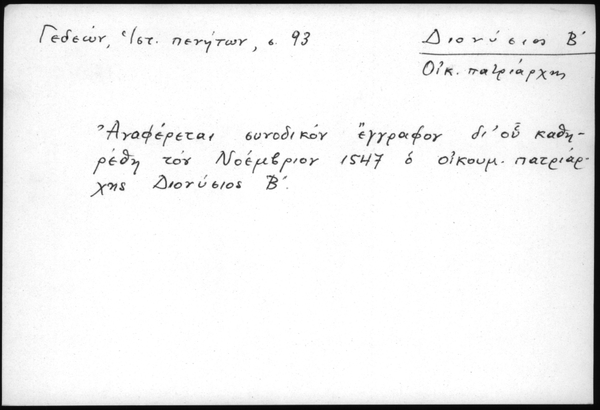 Γεδεών, Ἱστ. πενήτων, σ. 93
Διονύσιος Β΄
Οἰκ. πατριάρχης
Ἀναφέρεται συνοδικόν ἔγγραφον δι' οὗ καθη-
ρέθη τόν Νοέμβριον 1547 ὁ οἰκουμ. πατριάρ-
χης Διονύσιος Β΄.